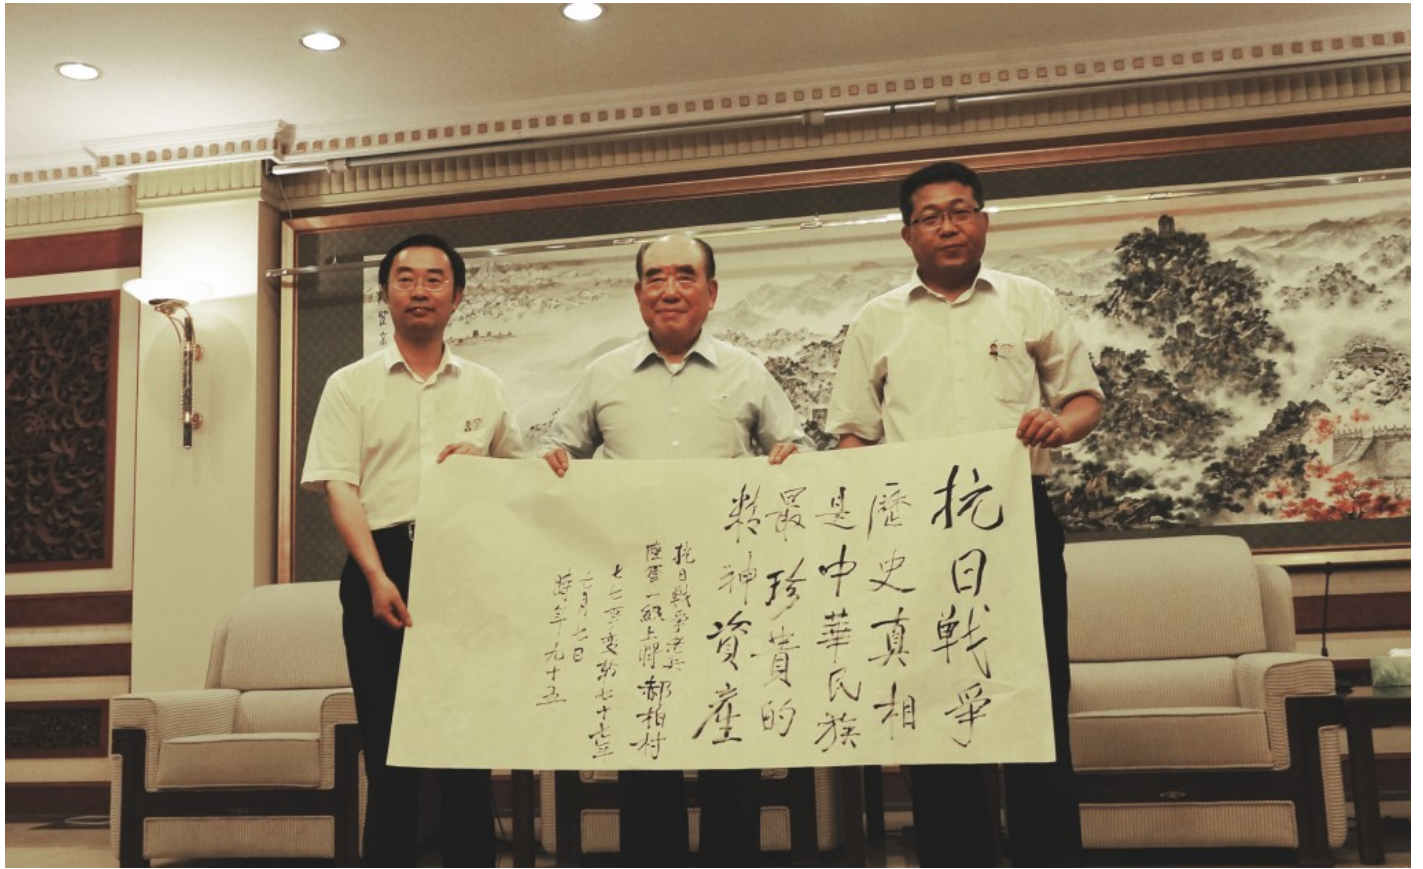 抗日戰爭
歷史真相
是中華民族
最珍貴的
精神資產
抗日戰爭老兵
陸軍一級上將郝柏村
七七事變第七十七年
七月七日
時年九十五